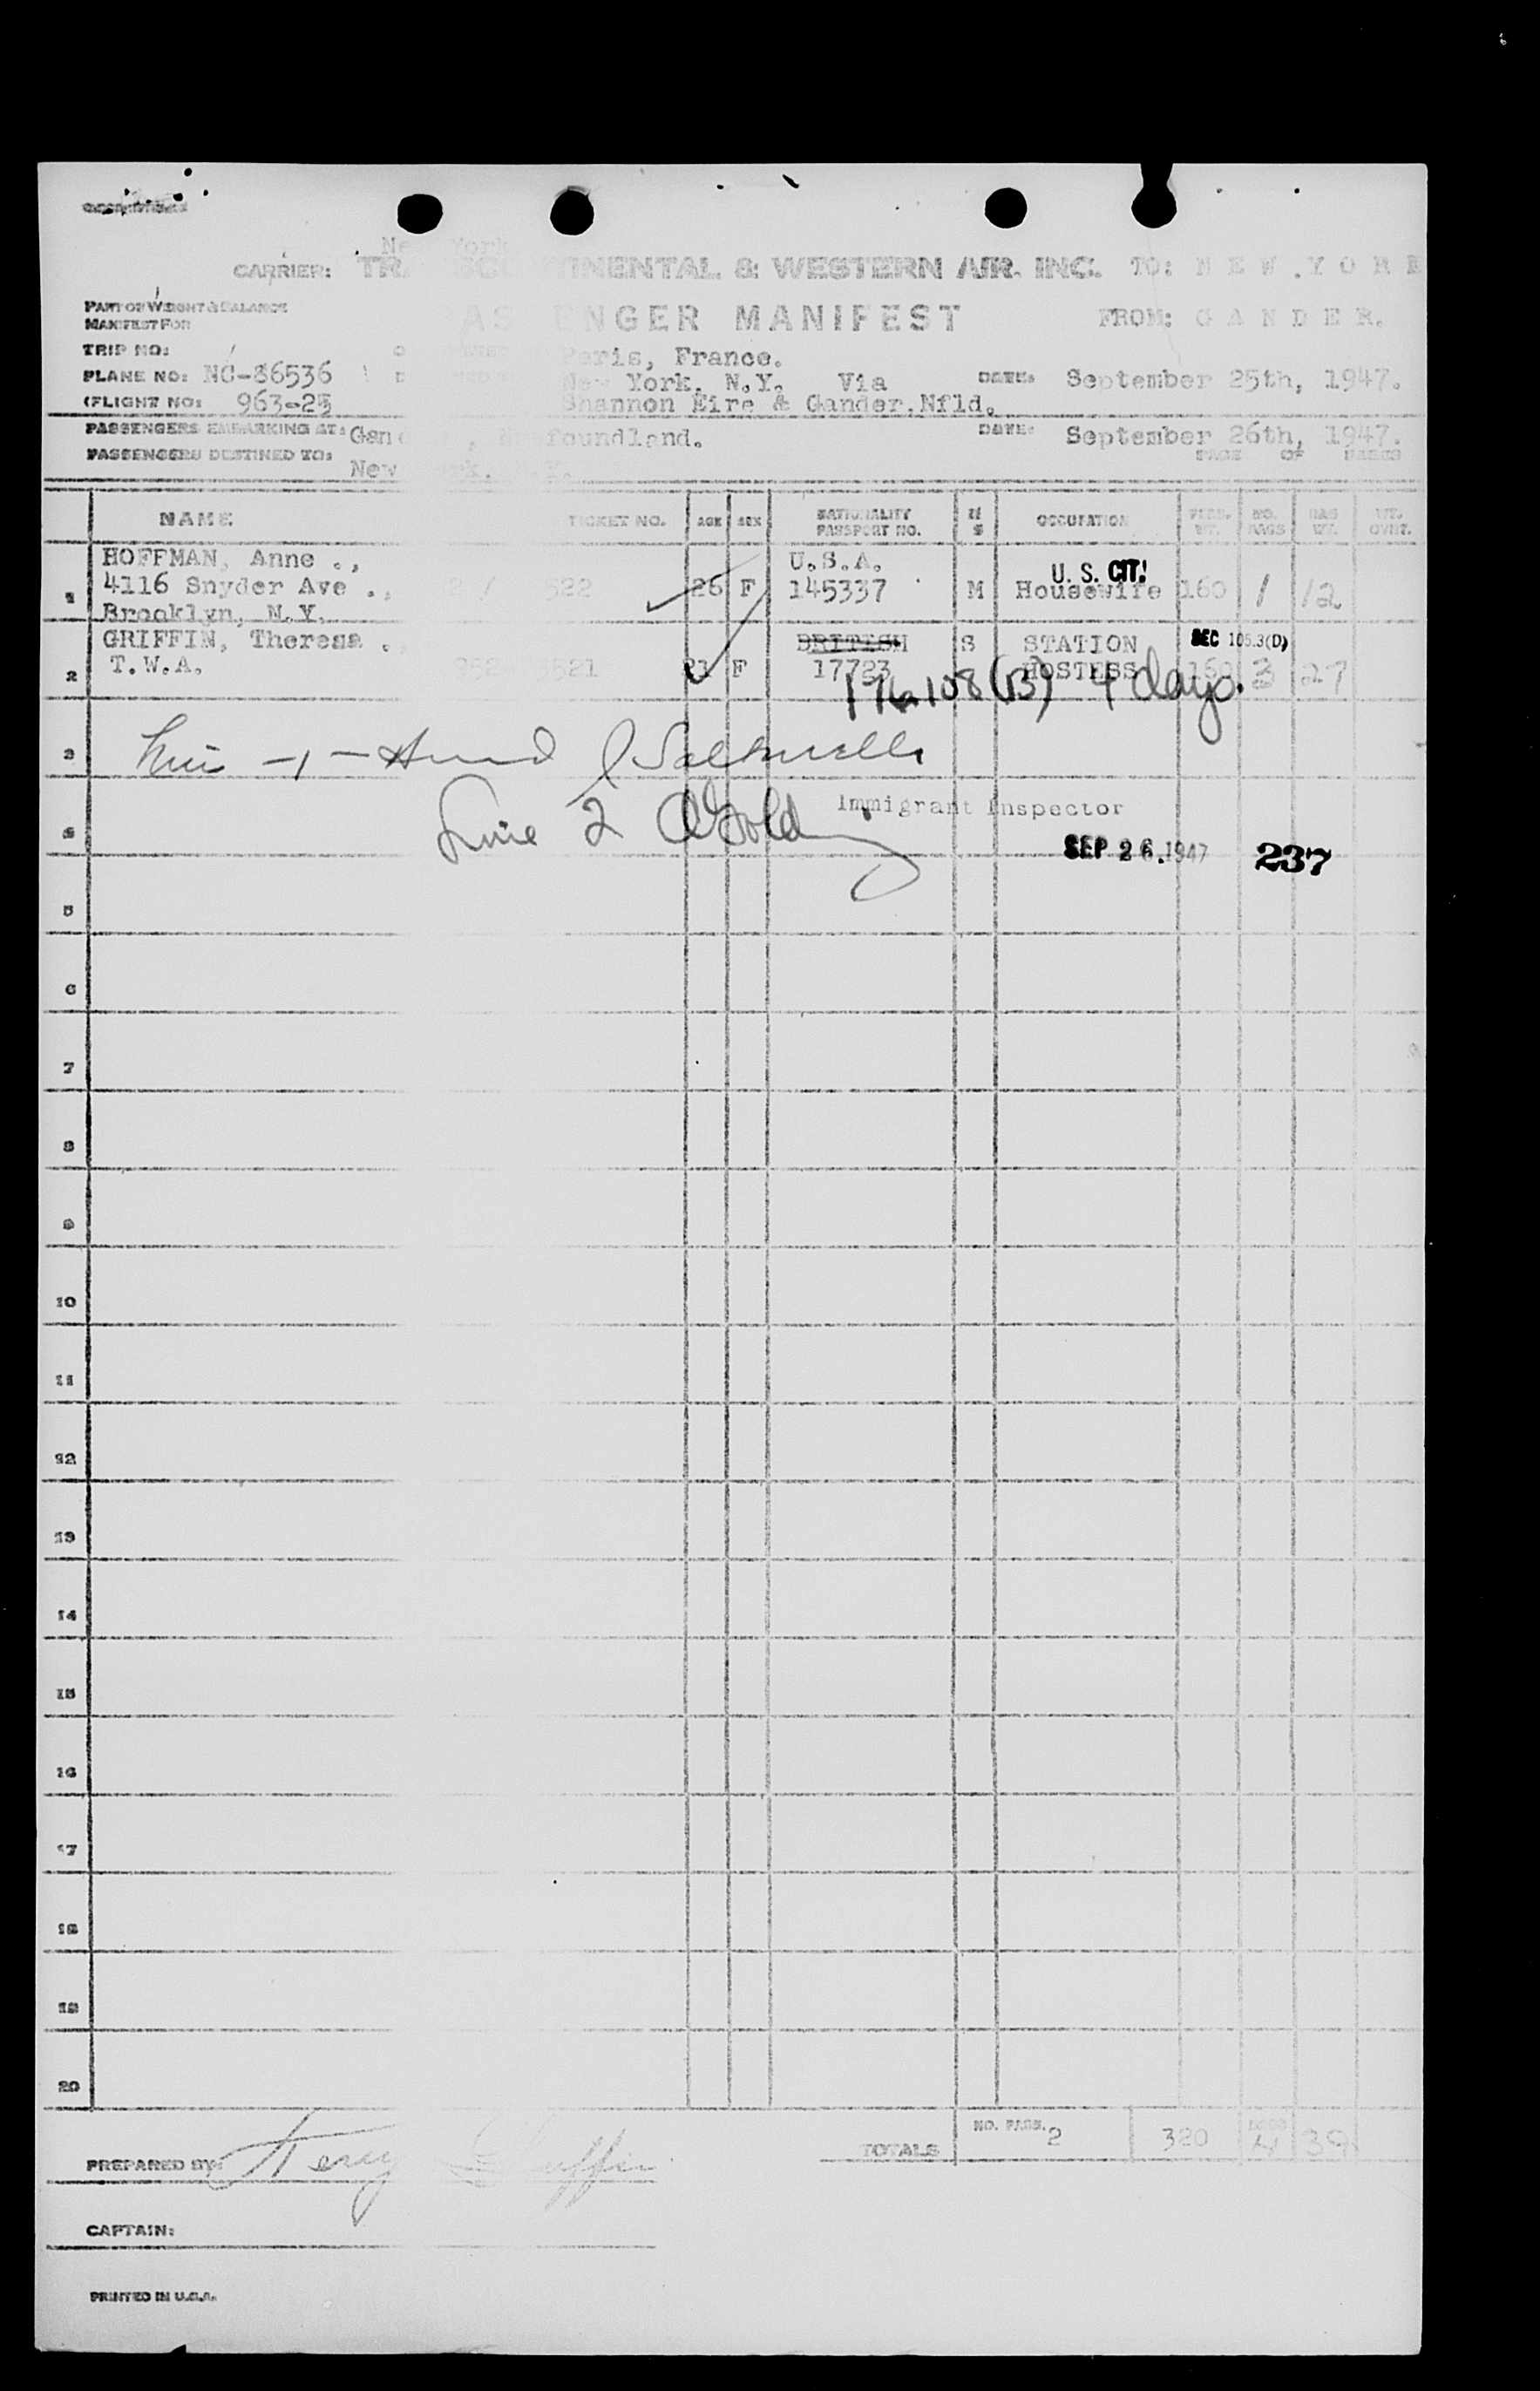 New York
CARRIER: TRA SCO TINENTAL & WESTERN AIR. INC. TO: N E W . Y O R K
PART OF WEIGHT & BALANCE
MANIFEST FOR
AS ENGER MANIFEST FROM: G A N D E R.
TRIP NO:
Paris, France.
PLANE NO: NC-86536
New York, N.Y. Via DATE: September 25th, 1947.
(FLIGHT NO: 963-25
Shannon Eire & Gander, Nfld.
PASSENGERS EMBARKING AT: Gander, Newfoundland. DATE: September 26th, 1947.
PASSENGERS DESTINED TO: New York. N.Y. PAGE OF PAGES
NAME TICKET NO. AGE SEX NATIONALITY PASSPORT NO. M S OCCUPATION PASS. WT. NO. BAGS BAG WT. WT. OVRT.
HOFFMAN, Anne ., U.S.A. U. S. CIT.
1 4116 Snyder Ave ., 522 26 F 145337 M Housewife 160 1 12
Brooklyn, N.Y.
GRIFFIN, Theresa . BRITISH S STATION SEC 105.3(D)
2 T.W.A. 521 21 F 17723 HOSTESS 160 3 27
176.108(B) 4 days.
3 Line -1-
Immigrant Inspector
4 Line 2
SEP 26 1947 237
5
6
7
8
9
10
11
12
13
14
15
16
17
18
19
20
TOTALS NO. PASS. 2 320 4 39
PREPARED BY: Terry Griffin
CAPTAIN:
PRINTED IN U.S.A.